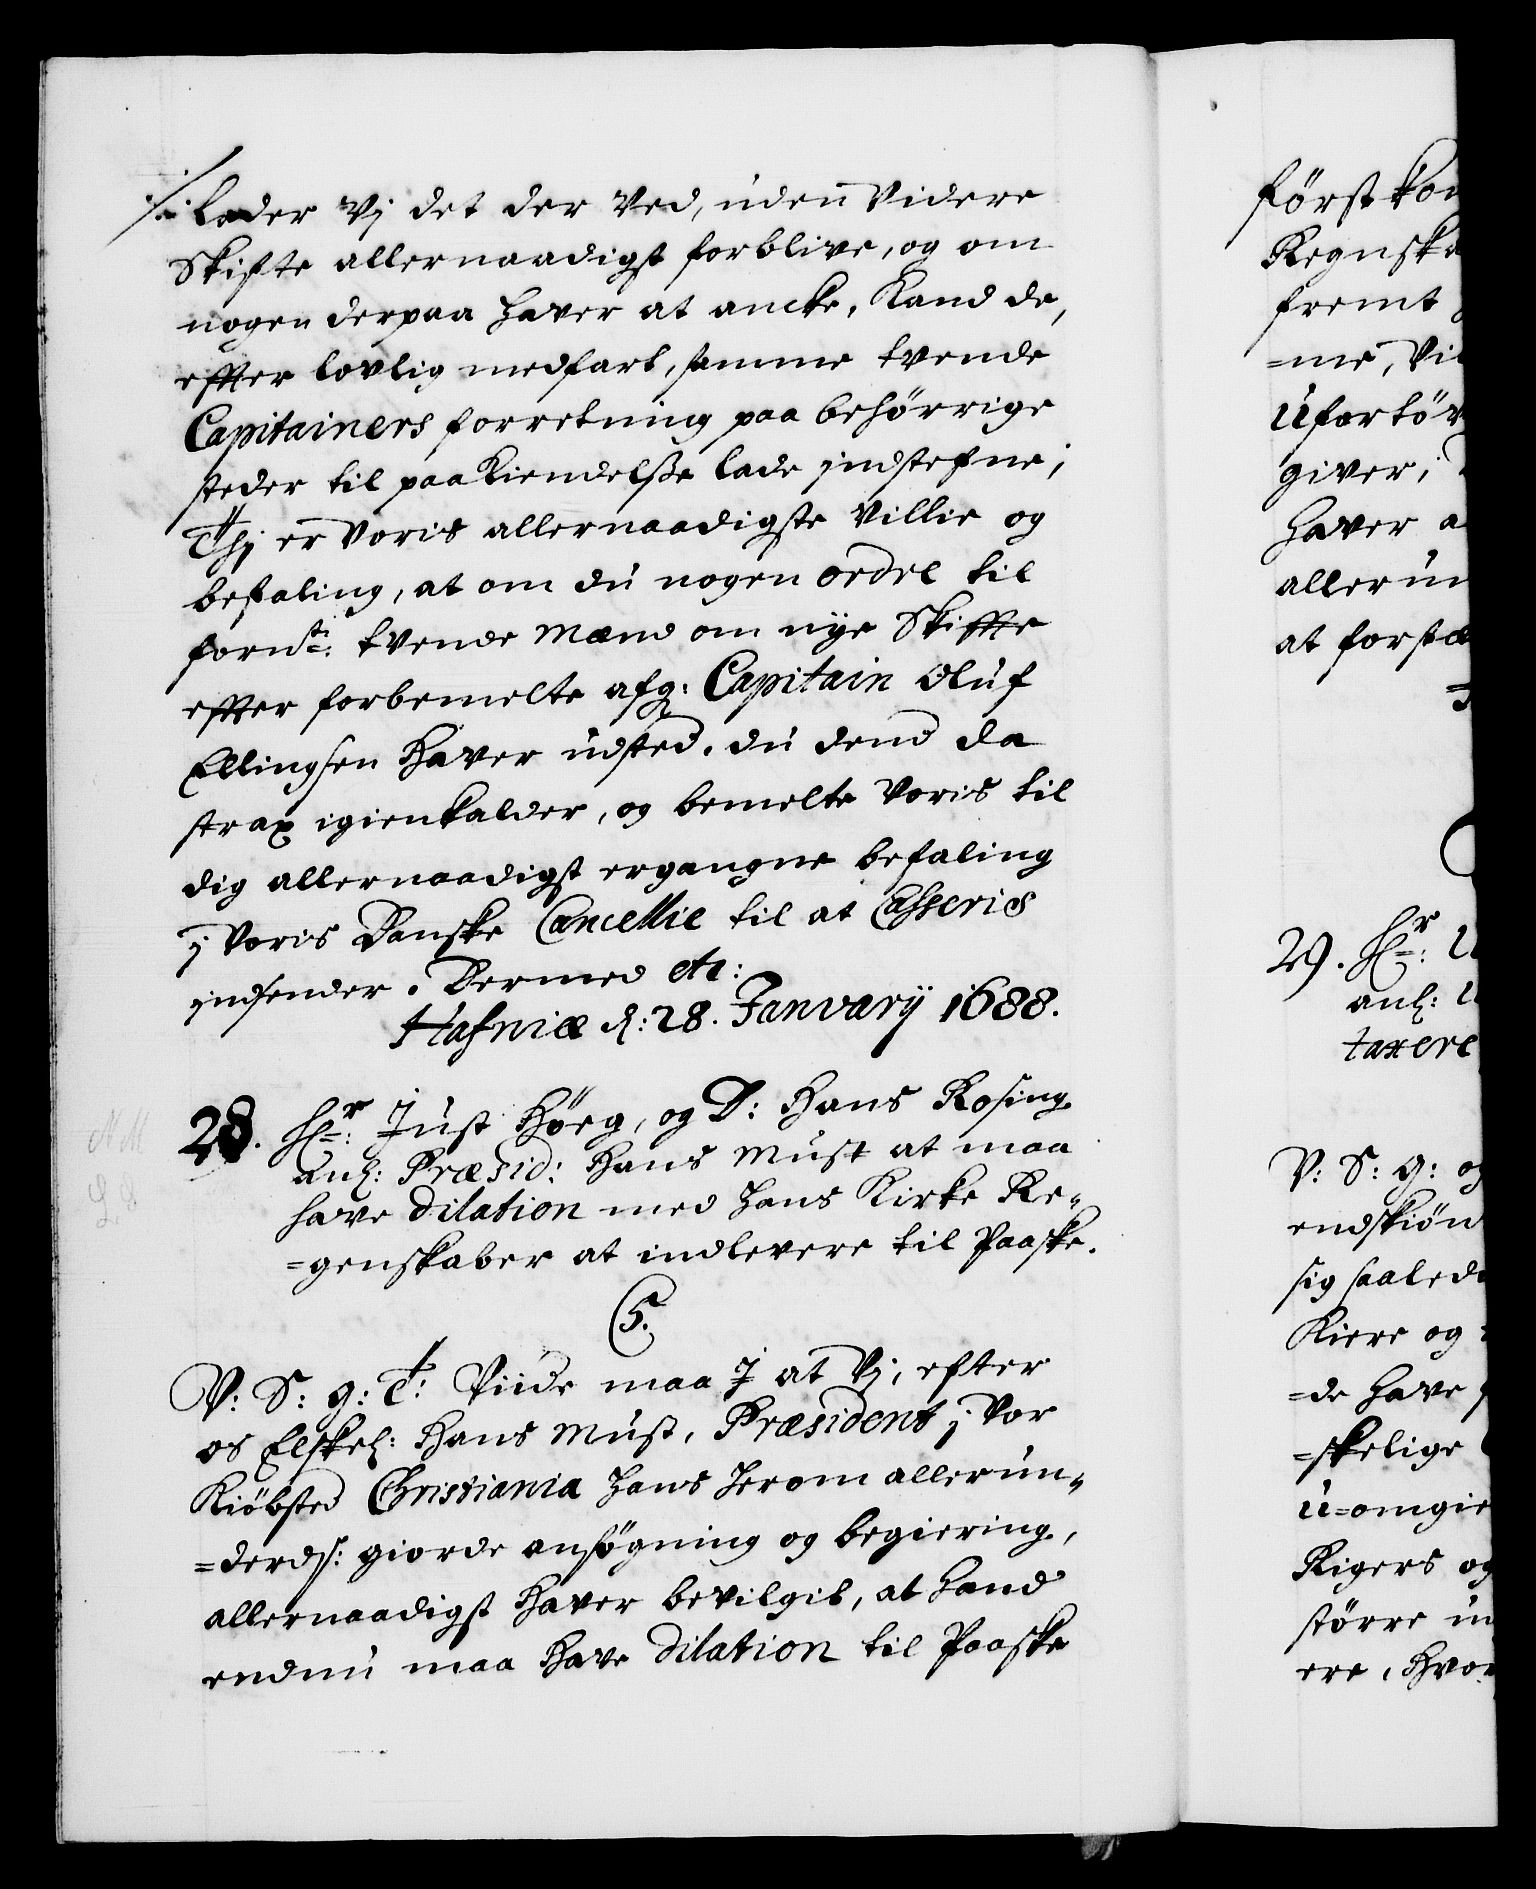 Lader Vj det der Ved, uden Videre
Skifte allernaadigst forblive, og om
nogen derpaa haver at ancke, Kand de,
effter lovlig medfart, samme tvende
Capitainers forretning paa behörrige
steder til paakiendelsse lade jndstefne;
Thj er Voris allernaadigste Villie og
befaling, at om du nogen ordre til
fornste: tvende Mænd om nye Skiffte
effter forbemelte afg: Capitain Oluf
Ellingsen haver udsted, du dend da
strax igienkalder, og bemelte Voris til
dig allernaadigst ergangne befaling
j Voris Danske Cancellie til at Casseris
jndsender. Dermed etc:
Hafniæ d: 28. Janvarij 1688.
28. Hr: Just Höeg, og D: Hans Rosing
anl: Præsid: Hans Must at maa
have dilation med hans Kirke Re-
=genskaber at indlevere til Paaske.
C5.
V: S: G: T: Viide maa J at Vj, efter
os Elskel: Hans Must, Præsident j Vor
Kiöbsted Christiania hans herom allerun-
=derds: giorde ansögning og begiering,
allernaadigst haver bevilgit, at hand
endnu maa have dilation til Paaske
först kom
Regnska
fremt
=me, Vi
Ufortöv
giver;
haver a
allerun
at forstæ
29. Hr: U
anl:
taxere
V: S: G: og
endskiön
sig saalede
Kiere og
=de have
=skelige
u=omgie
Rigers og
större un
ere, hvor